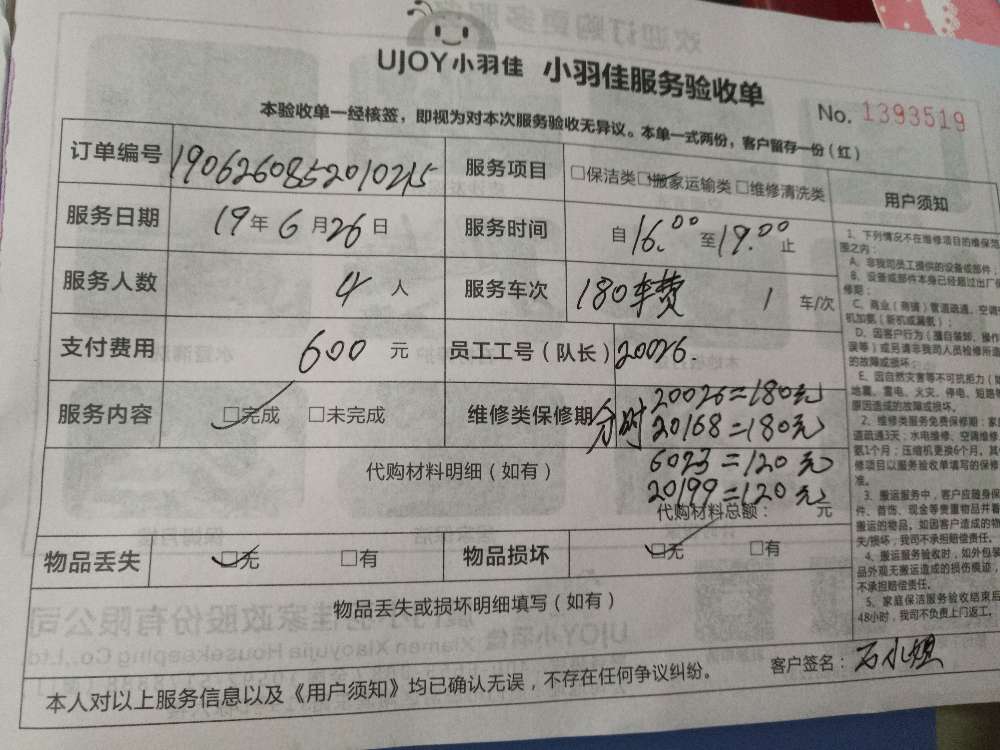 UJOY小羽佳 小羽佳服务验收单
No. 1393519
本验收单一经核签，即视为对本次服务验收无异议。本单一式两份，客户留存一份（红）
订单编号 1906260852010215 服务项目 □保洁类 ☑搬家运输类 □维修清洗类
服务日期 19年6月26日 服务时间 自16.00至19.00止
服务人数 4人 服务车次 180车费 1车/次
支付费用 600元 员工工号（队长） 20026.
服务内容 ☑完成 □未完成 维修类保修期
分时 20026=180元
20168=180元
6023=120元
20199=120元
代购材料明细（如有）
代购材料总额： 元
物品丢失 ☑无 □有 物品损坏 ☑无 □有
物品丢失或损坏明细填写（如有）
本人对以上服务信息以及《用户须知》均已确认无误，不存在任何争议纠纷。
客户签名：石小姐
用户须知
1、下列情况不在维修项目的维保范
围之内：
A、非我司员工提供的设备或部件；
B、设备或部件本身已经超过出厂保
修期；
C、商业（商铺）管道疏通、空调
机加氨（新机或漏氨）；
D、因客户行为（擅自装卸、操作
误等）或另请非我司人员检修所造
的故障或损坏；
E、因自然灾害等不可抗拒力（如
地震、雷电、火灾、停电、短路等
原因造成的故障或损坏。
2、维修类服务免费保修期：家庭
道疏通3天；水电维修、空调维修
氨1个月；压缩机更换6个月，其
修项目以服务验收单填写的保修
准。
3、搬运服务中，客户应随身保
件、首饰、现金等贵重物品并看
搬运的物品，如因客户造成的物
失/损坏；我司不承担赔偿责任。
4、搬运服务验收时，如外包装
品外观无搬运造成的损伤痕迹，
不承担赔偿责任。
5、家庭保洁服务验收结束后
48小时，我司不负责上门返工。